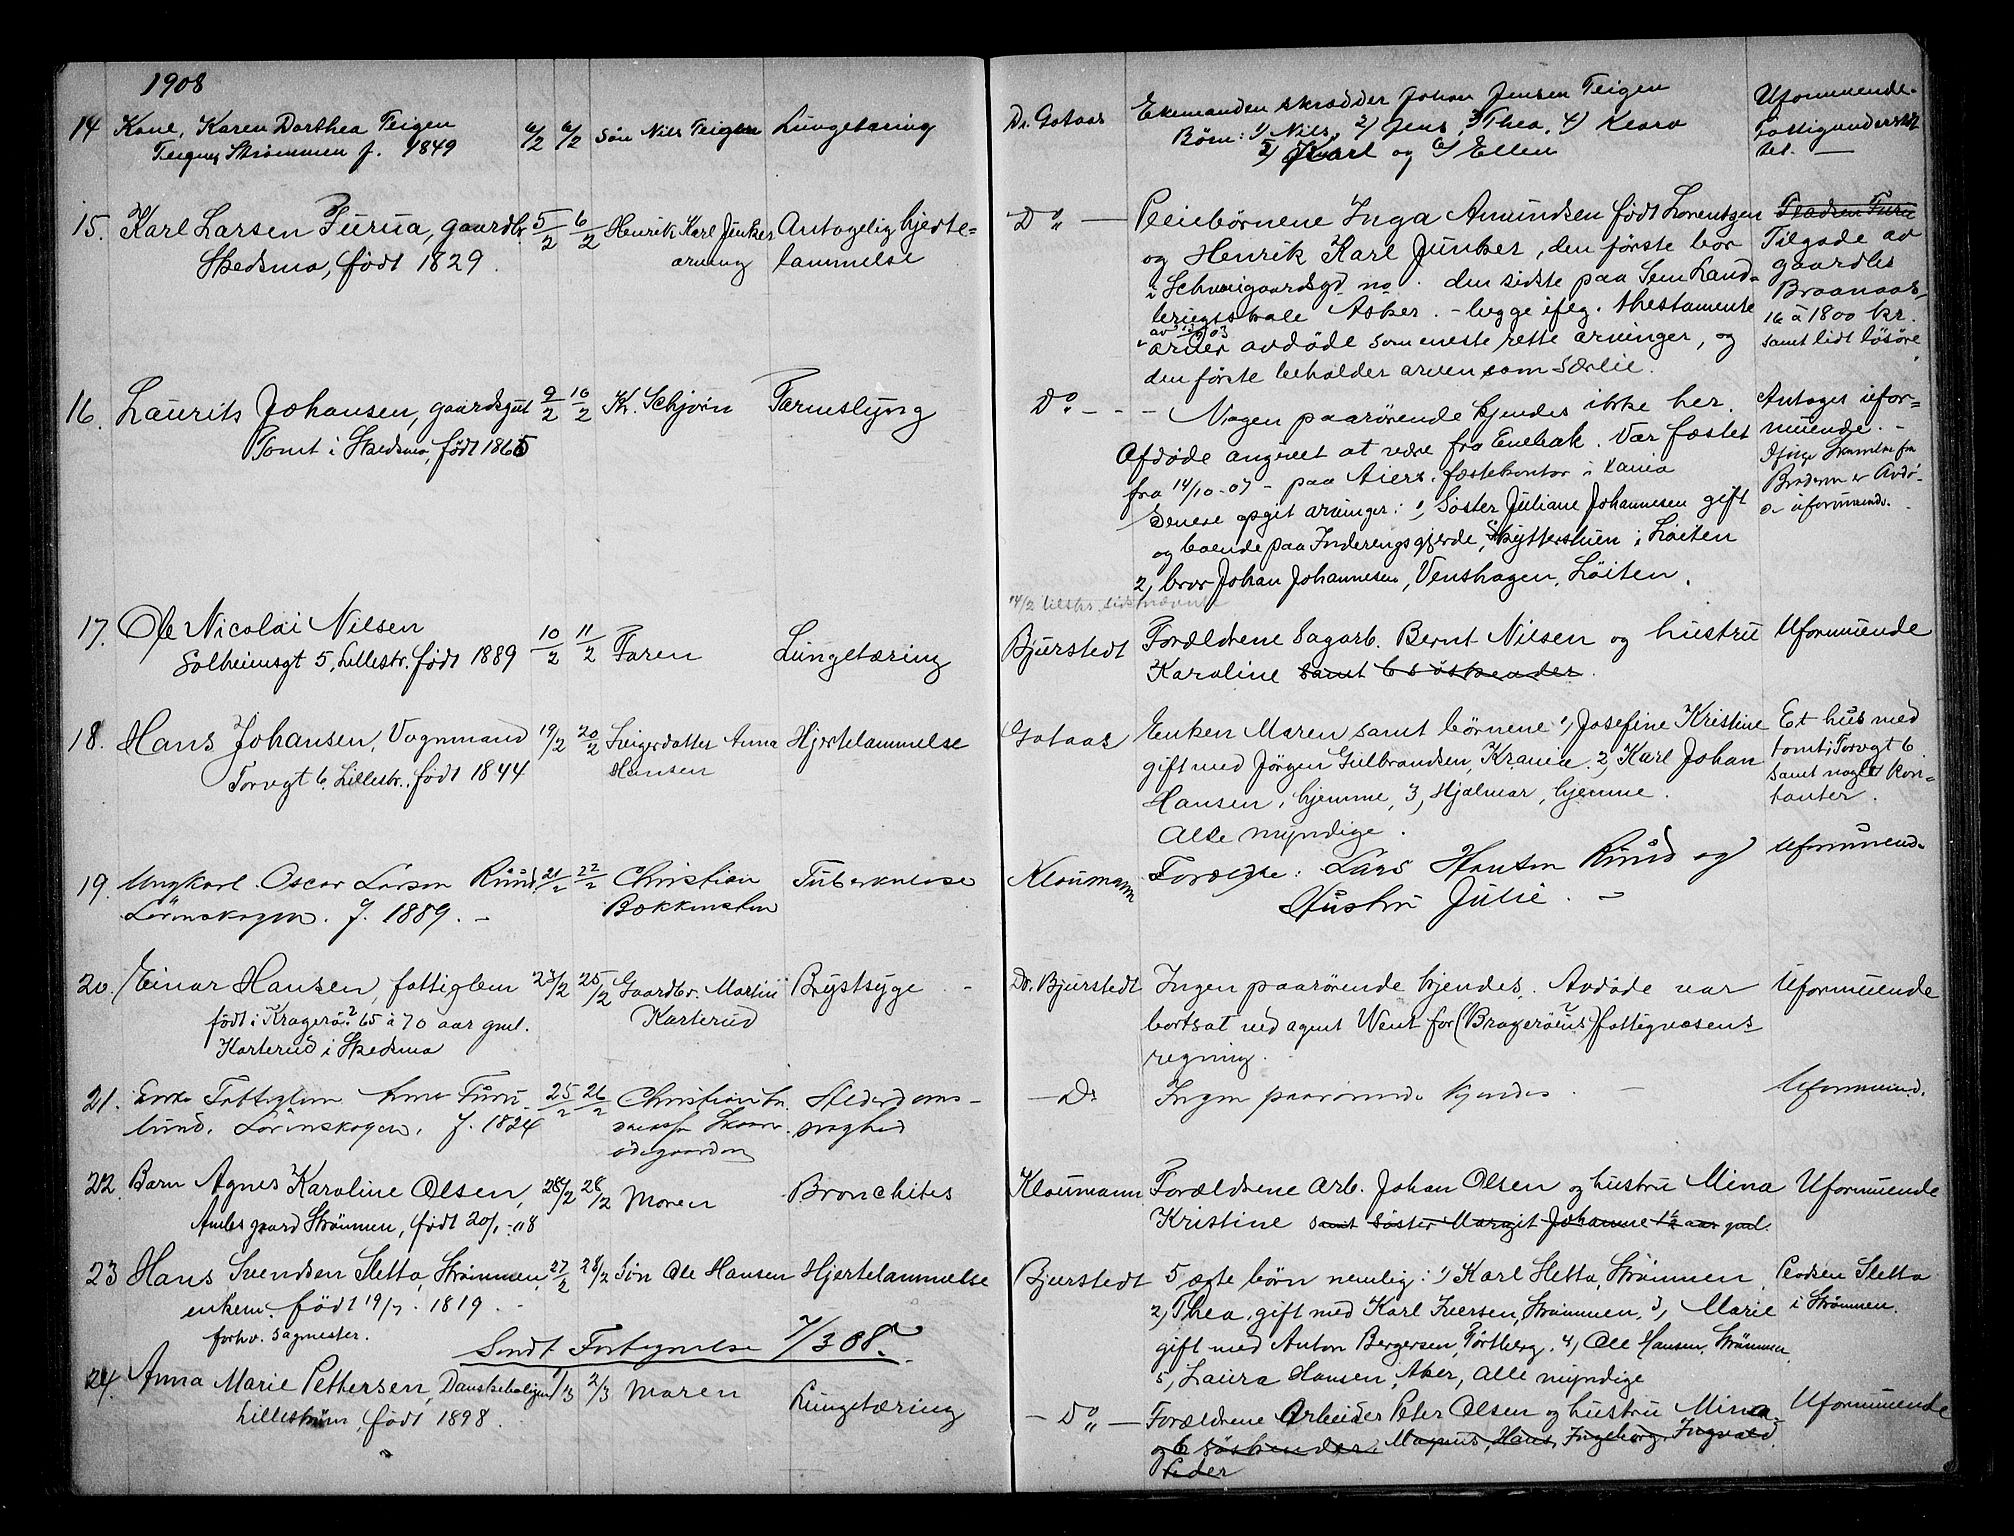 1908
14 Kone, Karen Dorthea Teigen 6/2 6/2 Søn Nils Teigen Lungetæring
Teigen, Strømmen f. 1849
Dr. Gotaas Ekemanden skrædder Johan Jensen Teigen
Børn: 1) Nils, 2) Jens, 3) Thea, 4) Klara
5) Karl og 6) Ellen
Uformuende.
Fattigunderstøt
tet. —
15. Karl Larsen Furua, gaardbr. 5/2 6/2 Henrik Karl Junker Antagelig hjerte-
Skedsmo, født 1829. arving lammelse
Do — Pleiebørnene Inga Amundsen født Lorentzen
og Henrik Karl Junker, den første bor
i Schweigaardsgd no . den sidste paa Sem Land-
brugsskole Asker. - begge ifølg. thestamente
av 03
arver avdøde som eneste rette arvinger, og
den første beholder arven som Særeie.
Pladsen Furu
Tilgode av
gaardbr
Braanaas,
16 à 1800 kr.
samt lidt løsøre.
16. Laurits Johansen, gaardsgut 9/2 10/2 Kr. Schjøin Tarmslyng
Tomt i Skedsmo, født 1865
Do - - - Nogen paarørende kjendes ikke her.
Afdøde angivet at være fra Enebak. Var fæstet
fra 14/10-07 - paa Aiers. fæstekontor i Kania
Senere opgit arvinger: 1, Søster Juliane Johannesen gift
og boende paa Inderengsgjerde, Skytterstuen i Løiten
2, bror Johan Johannesen, Venshagen, Løiten.
14/2 tilskr. sidstnævnte
Antages ufor-
muende. -
Ifølge Skrivelse fra
Broderen er Avdø-
d uformuende.
17. Ole Nicolai Nilsen 10/2 11/2 Faren Lungetæring
Solheimsgt 5, Lillestr. født 1889
Bjurstedt Forældrene Sagarb. Bernt Nilsen og hustru
Karoline samt 6 søskender.
Uformuende
18. Hans Johansen, Vognmand 19/2 20/2 Svigerdatter Anna Hjertelammelse
Torvgt 6, Lillestr., født 1844 Hansen
Gotaas Enken Maren samt børnene 1, Josefine Kristine
gift med Jørgen Gulbrandsen, Krania. 2, Karl Johan
Hansen, hjemme, 3, Hjalmar, hjemme.
Alle myndige.
Et hus med
tomt i Torvgt 6
samt nogle kon-
tanter.
19. Ungkarl Oscar Larsen Ruud 21/2 22/2 Christian Tuberkulose
Lørenskogen. f. 1889. - Bekkensten
Kloumann Forældre: Lars Hansen Ruud og
Hustru Julie. -
Uformuend.
20. Einar Hansen, fattiglem 23/2 25/2 Gaardbr. Martin Brystsyge -
født i Kragerø? 65 à 70 aar gml. Karterud
Karterud i Skedsmo
Dr. Bjurstedt Ingen paarørende kjendes. Avdøde var
bortsat ved agent Went for (Bragerøens?) fattigvæsens
regning.
Uformuende
21. Enke Fattiglem Anna Furu- 25/2 26/2 Christian Alderdoms-
lund, Lørenskogen, f. 1824 svaghed
ødegaarden
— Do Ingen paarørende kjendes. -
Uformuend.
22. Barn Agnes Karoline Olsen, 28/2 28/2 Moren Bronchites
gaard Strømmen, født 20/1-08
Kloumann Forældrene Arb. Johan Olsen og hustru Mina
Kristine samt søster Margit Johanne 1½ aar gml.
Uformuende
23 Hans Svendsen Sletta, Strømmen, 27/2 28/2 Søn Ole Hansen Hjertelammelse
enkem. født 19/7 - 1819.
forhv. sagmester.
Bjurstedt 5 ægte børn nemlig: 1) Karl Sletta, Strømmen,
2, Thea, gift med Karl Iversen, Strømmen, 3, Marie
gift med Anton Bergersen, Tortberg, 4, Ole Hansen, Strømmen,
5, Laura Hansen, Aker, alle myndige
Pladsen Sletta
i Strømmen.
Sendt Fortegnelse 7/3 08.
24. Anna Marie Pettersen, Danskeboligen 1/3 2/3 Moren Lungetæring
Lillestrøm, født 1898.
— Do — Forældrene Arbeider Peter Olsen og hustru Mina
og 6 søskender: Magnus, Hans, Ingeborg, Ingvald,
Peder
Uformuende